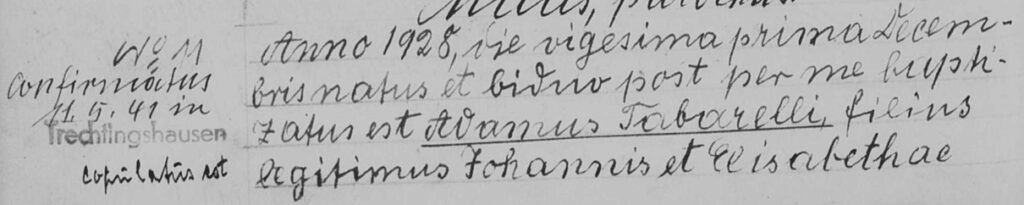 Millis, parochus.
No 11
Confirmatus
11. 5. 41 in
Trechtingshausen
copulatus est
Anno 1928, die vigesima prima Decem-
bris natus et biduo post per me bapti-
zatus est Adamus Tabarelli, filius
legitimus Johannis et Elisabethae